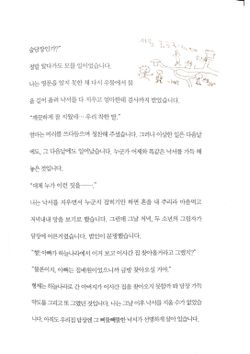 숨당장인가?”
정말 알다가도 모를 일이었습니다.
나는 영문을 알지 못한 채 다시 우물에서 물
을 길어 올려 낙서를 다 지우고 엄마한테 검사까지 받았습니다.
“깨끗하게 잘 지웠네… 우리 착한 딸.”
엄마는 머리를 쓰다듬으며 칭찬해 주셨습니다. 그러나 이상한 일은 다음날
에도, 그 다음날에도 일어났습니다. 누군가 어제와 똑같은 낙서를 가득 해
놓은 것입니다.
“대체 누가 이런 짓을——.”
나는 낙서를 지우면서 누군지 잡히기만 하면 혼을 내 주리라 마음먹고
저녁내내 망을 보기로 했습니다. 그런데 그날 저녁, 두 소년의 그림자가
담장에 어른거렸습니다. 범인이 분명했습니다.
“형! 아빠가 하늘나라에서 이거 보고 이사간 집 찾아올거라고 그랬지?”
“물론이지, 아빠는 집배원이었으니까 금방 찾아오실 거야.”
형제는 하늘나라로 간 아버지가 이사간 집을 찾아오지 못할까 봐 담장 가득
약도를 그리고 또 그렸던 것입니다. 나는 그날 이후 낙서를 지울 수가 없었습
니다. 아직도 우리집 담장엔 그 삐뚤빼뚤한 낙서가 선명하게 남아 있습니다.